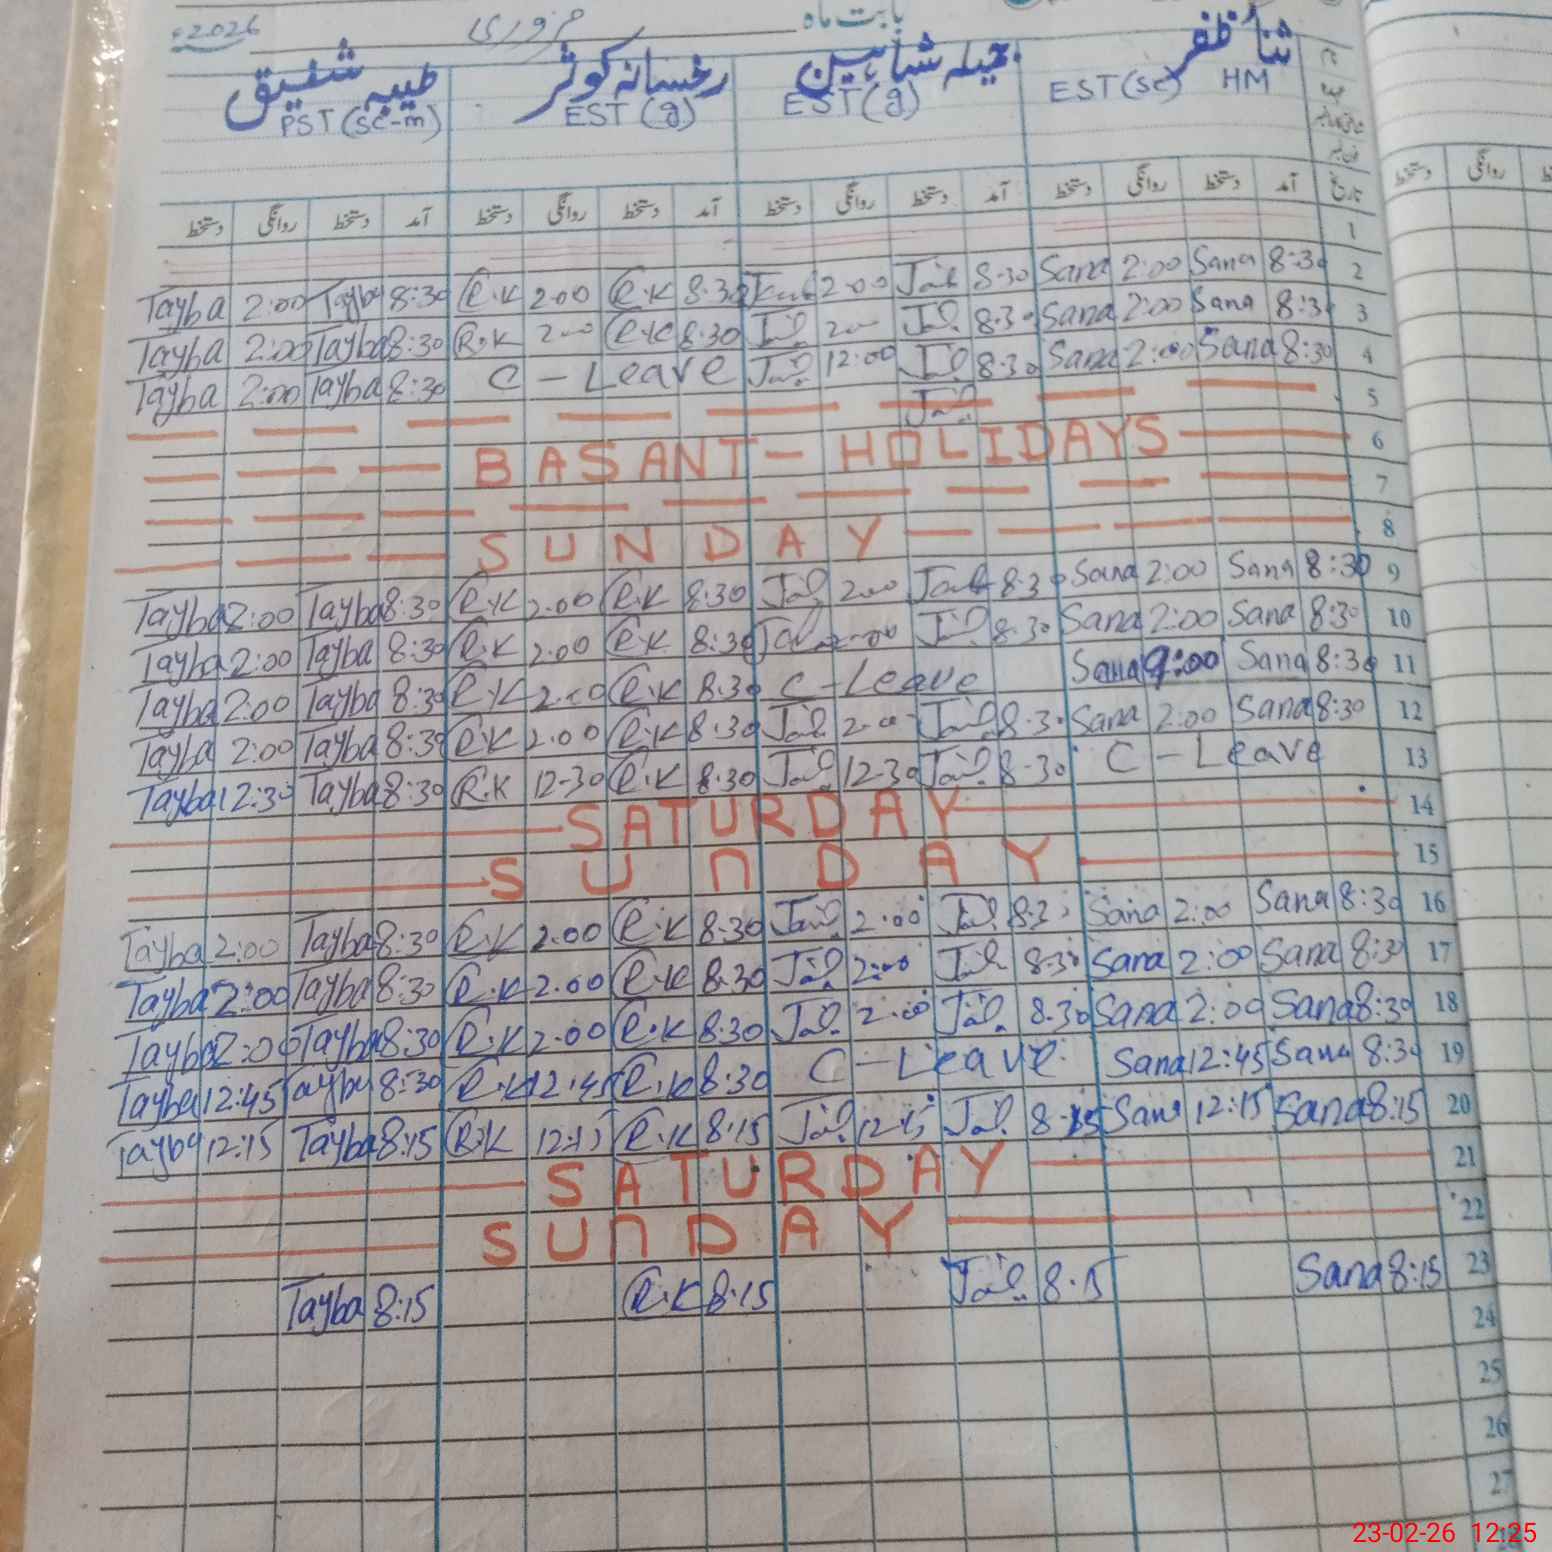 بابت ماہ فروری 2026ء
ثناء ظفر جمیلہ شاہین رخسانہ کوثر طیبہ شفیق
HM EST(sc) EST(g) EST(g) PST(sc-m)
تاریخ آمد دستخط روانگی دستخط آمد دستخط روانگی دستخط آمد دستخط روانگی دستخط آمد دستخط روانگی دستخط
روانگی دستخط
1
Tayba 2:00 Tayba 8:30 R.K 2.00 R.K 8.30 2.00 8.30 Sana 2:00 Sana 8:30 2
Tayba 2:00 Tayba 8:30 R.K 2.00 R.K 8.30 2.00 8.30 Sana 2:00 Sana 8:30 3
Tayba 2:00 Tayba 8:30 C - Leave 12:00 8.30 Sana 2:00 Sana 8:30 4
5
BASANT - HOLIDAYS 6
7
SUNDAY 8
Tayba 2:00 Tayba 8:30 R.K 2.00 R.K 8.30 2.00 8.30 Sana 2:00 Sana 8:30 9
Tayba 2:00 Tayba 8:30 R.K 2.00 R.K 8.30 2.00 8.30 Sana 2:00 Sana 8:30 10
Tayba 2:00 Tayba 8:30 R.K 2.00 R.K 8.30 C - Leave Sana 9:00 Sana 8:30 11
Tayba 2:00 Tayba 8:30 R.K 2.00 R.K 8.30 2.00 8.30 Sana 2:00 Sana 8:30 12
Tayba 12:30 Tayba 8:30 R.K 12-30 R.K 8.30 12-30 8-30 C - Leave 13
SATURDAY 14
SUNDAY 15
Tayba 2:00 Tayba 8:30 R.K 2.00 R.K 8.30 2.00 8.30 Sana 2:00 Sana 8:30 16
Tayba 2:00 Tayba 8:30 R.K 2.00 R.K 8.30 2:00 8.30 Sana 2:00 Sana 8:30 17
Tayba 2:00 Tayba 8:30 R.K 2.00 R.K 8.30 2:00 8.30 Sana 2:00 Sana 8:30 18
Tayba 12:45 Tayba 8:30 R.K 12.45 R.K 8.30 C - Leave Sana 12:45 Sana 8:30 19
Tayba 12:15 Tayba 8:15 R.K 12:15 R.K 8.15 12.15 8.15 Sana 12:15 Sana 8:15 20
SATURDAY 21
SUNDAY 22
Tayba 8:15 R.K 8.15 8.15 Sana 8:15 23
24
25
26
27
23-02-26 12:25